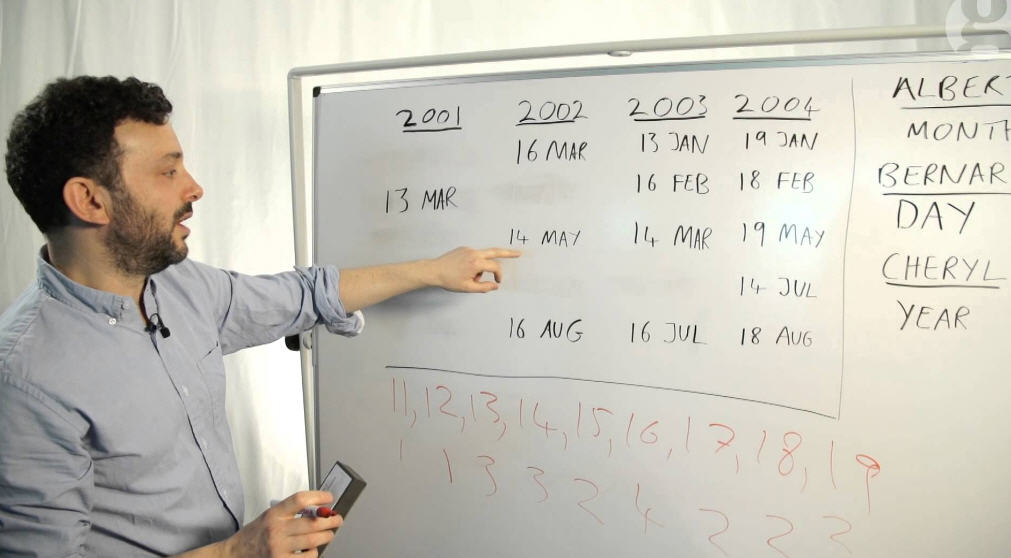 2001 2002 2003 2004
16 MAR 13 JAN 19 JAN
13 MAR 16 FEB 18 FEB
14 MAY 14 MAR 19 MAY
14 JUL
16 AUG 16 JUL 18 AUG
ALBER
MONTH
BERNAR
DAY
CHERYL
YEAR
11, 12, 13, 14, 15, 16, 17, 18, 19
1 1 3 3 2 4 2 2 2
g